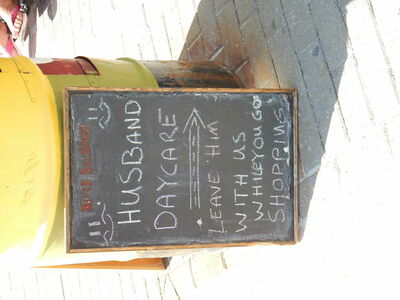 HUSBAND
DAYCARE
LEAVE HIM
WITH US
WHILE YOU GO
SHOPPING